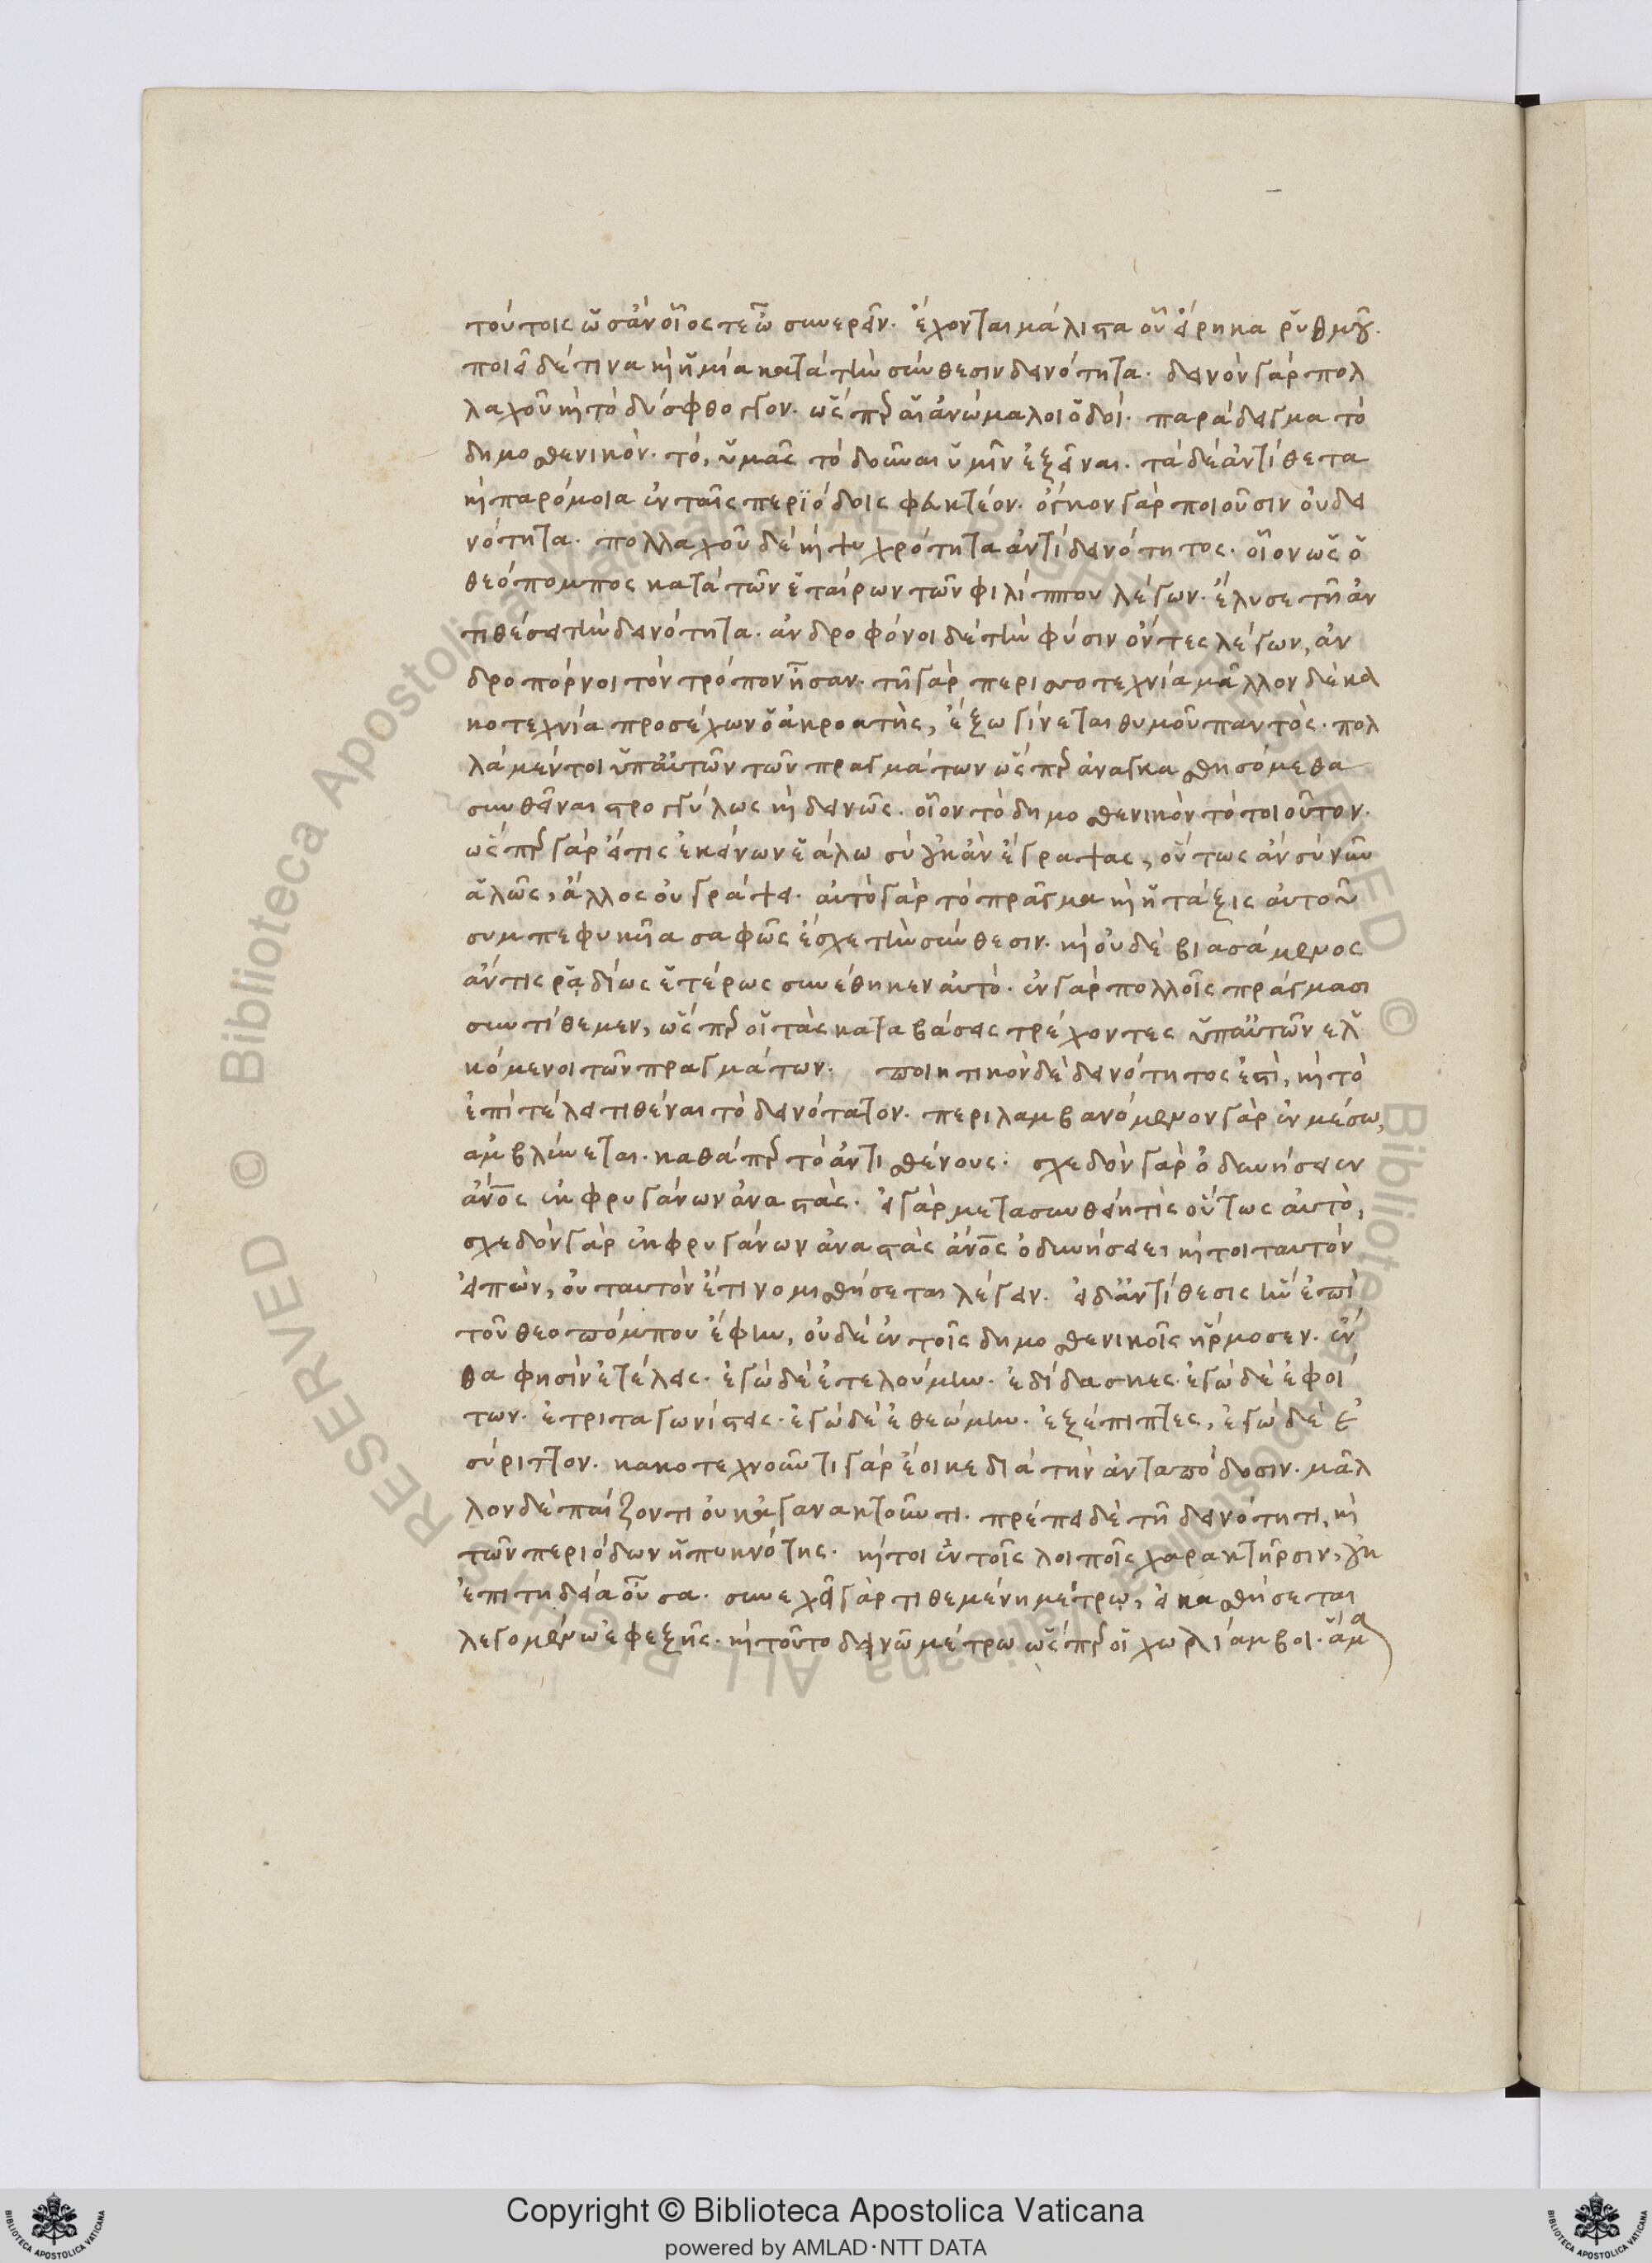 τούτοις ὡς ἂν οἷός τε ὦ συνείρειν. ἔχονται μάλιστα οὗ εἴρηκα ῥυθμοῦ.
ποιεῖ δέ τινα καὶ ἡ μία κατὰ τὴν σύνθεσιν δεινότητα. δεινὸν γὰρ πολ
λαχοῦ καὶ τὸ δύσφθογγον. ὥσπερ αἱ ἀνώμαλοι ὁδοί. παράδειγμα τὸ
δημοσθενικὸν. τὸ, ὑμᾶς τὸ δοῦναι ὑμῖν ἐξεῖναι. τὰ δὲ ἀντίθετα
καὶ παρόμοια ἐν ταῖς περιόδοις φευκτέον. ὄγκον γὰρ ποιοῦσιν οὐ δει
νότητα. πολλαχοῦ δὲ καὶ ψυχρότητα ἀντὶ δεινότητος. οἷον ὡς ὁ
θεόπομπος κατὰ τῶν ἑταίρων τῶν φιλίππου λέγων. ἔλυσε τῇ ἀν
τιθέσει τὴν δεινότητα. ἀνδροφόνοι δὲ τὴν φύσιν ὄντες λέγων, ἀν
δροπόρνοι τὸν τρόπον ἦσαν. τῇ γὰρ περισσοτεχνία μᾶλλον δὲ κα
κοτεχνία προσέχων ὁ ἀκροατὴς, ἔξω γίνεται θυμοῦ παντὸς. πολ
λὰ μέντοι ὑπ' αὐτῶν τῶν πραγμάτων ὥσπερ ἀναγκασθησόμεθα
συνθεῖναι στρογγύλως καὶ δεινῶς. οἷον τὸ δημοσθενικὸν τὸ τοιοῦτον.
ὥσπερ γὰρ εἴ τις ἐκείνων ἑάλω σὺ οὐκ ἂν ἔγραψας, οὕτως ἂν σὺ νῦν
ἁλῶς, ἄλλος οὐ γράψει. αὐτὸ γὰρ τὸ πρᾶγμα καὶ ἡ τάξις αὐτοῦ
συμπεφυκυῖα σαφῶς ἔσχε τὴν σύνθεσιν. καὶ οὐδὲ βιασάμενος
ἄν τις ῥᾳδίως ἑτέρως συνέθηκεν αὐτό. ἐν γὰρ πολλοῖς πράγμασι
συντίθεμεν, ὥσπερ οἱ τὰς καταβάσεις τρέχοντες ὑπ' αὐτῶν ἑλ
κόμενοι τῶν πραγμάτων. ποιητικὸν δὲ δεινότητος ἐστὶ, καὶ τὸ
ἐπὶ τέλει τιθέναι τὸ δεινότατον. περιλαμβανόμενον γὰρ ἐν μέσω,
ἀμβλύνεται. καθάπερ τὸ ἀντισθένους. σχεδὸν γὰρ ὀδυνήσειεν
ἄνος ἐκ φρυγάνων ἀναστὰς. εἰ γὰρ μετασυνθείη τὶς οὕτως αὐτὸ,
σχεδὸν γὰρ ἐκ φρυγάνων ἀναστὰς ἄνος ὀδυνήσει, καίτοι ταυτὸν
εἰπὼν, οὐ ταυτὸν ἔτι νομισθήσεται λέγειν. εἰ δ' ἀντίθεσις ἣν ἐπὶ
τοῦ θεοπόμπου ἔφην, οὐδὲ ἐν τοῖς δημοσθενικοῖς ἥρμοσεν. ἔν
θα φησὶν ἐτέλεις. ἐγὼ δὲ ἐτελούμην. ἐδίδασκες. ἐγὼ δὲ ἐφοί
των. ἐτριταγωνίστεις. ἐγὼ δὲ ἐθεώμην. ἐξέπιπτες, ἐγὼ δὲ ἐ
σύριττον. κακοτεχνοῦντι γὰρ ἔοικε διὰ τὴν ἀνταπόδοσιν. μᾶλ
λον δὲ παίζοντι οὐκ ἀγανακτοῦντι. πρέπει δὲ τῇ δεινότητι, καὶ
τῶν περιόδων ἡ πυκνότης. καίτοι ἐν τοῖς λοιποῖς χαρακτῆρσιν, οὐκ
ἐπιτηδεία οὖσα. συνεχεῖ γὰρ τιθεμένη μέτρω, εἰκασθήσεται
λεγομένω ἐφεξῆς. καὶ τοῦτο δεινῶ μέτρω ὥσπερ οἱ χωλίαμβοι. ἅμα